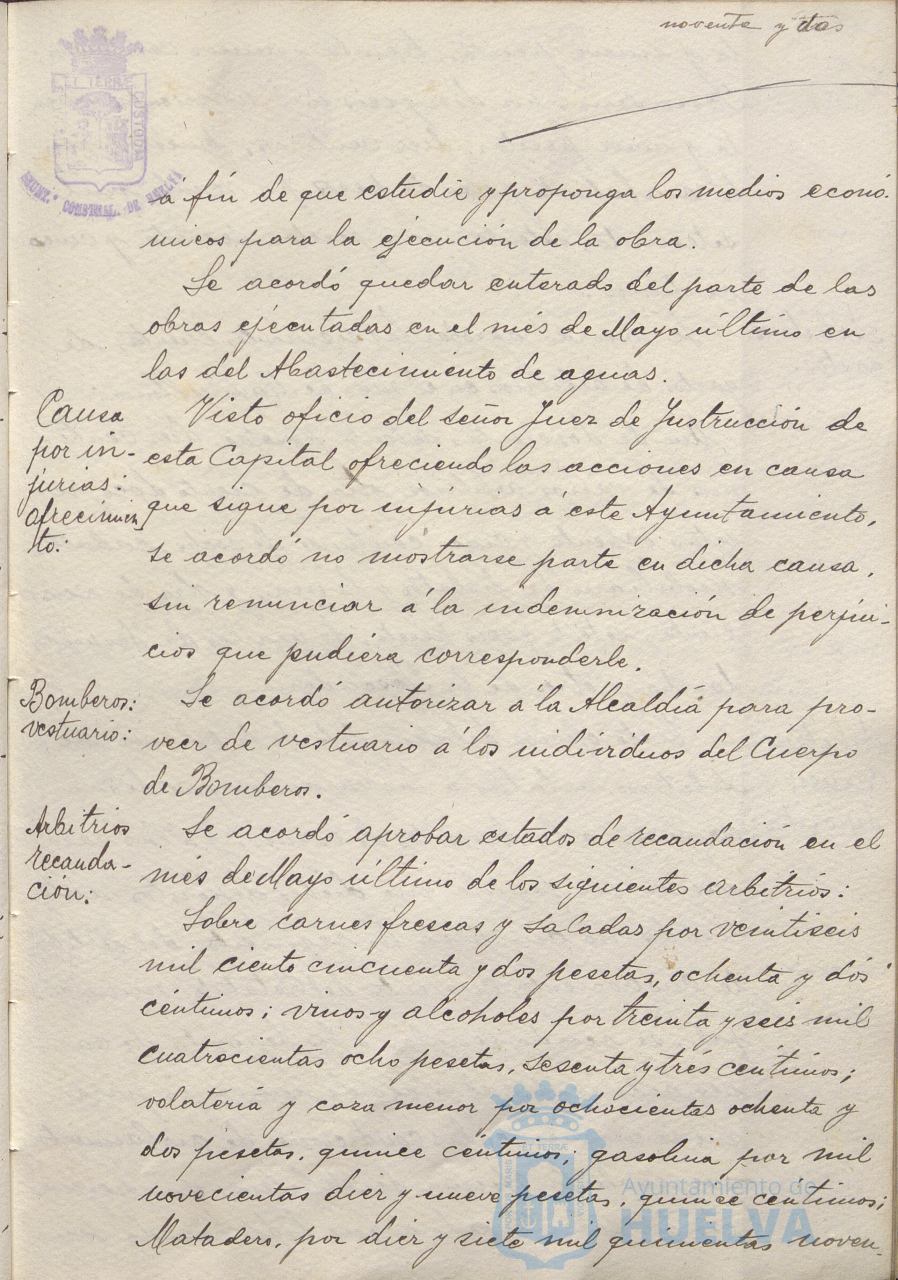 noventa y dos
á fin de que estudie y proponga los medios econó-
micos para la ejecución de la obra.
Se acordó quedar enterado del parte de las
obras ejecutadas en el més de Mayo último en
las del Abastecimiento de aguas.
Causa
por in-
jurias:
ofrecimien
to:
Visto oficio del señor Juez de Instrucción de
esta Capital ofreciendo las acciones en causa
que sigue por injurias á este Ayuntamiento,
se acordó no mostrarse parte en dicha causa,
sin renunciar á la indemnización de perjui-
cios que pudiera corresponderle.
Bomberos:
vestuario:
Se acordó autorizar á la Alcaldía para pro-
veer de vestuario á los individuos del Cuerpo
de Bomberos.
Arbitrios
recauda-
ción:
Se acordó aprobar estados de recaudación en el
més de Mayo último de los siguientes arbitrios:
Sobre carnes frescas y saladas por veintiseis
mil ciento cincuenta y dos pesetas, ochenta y dós
céntimos; vinos y alcoholes por treinta y seis mil
cuatrocientas ocho pesetas, sesenta y trés céntimos;
volatería y caza menor por ochocientas ochenta y
dos pesetas, quince céntimos; gasolina por mil
novecientas diez y nueve pesetas, quince centimos;
Matadero, por diez y siete mil quinientas noven-
Ayuntamiento de
HUELVA